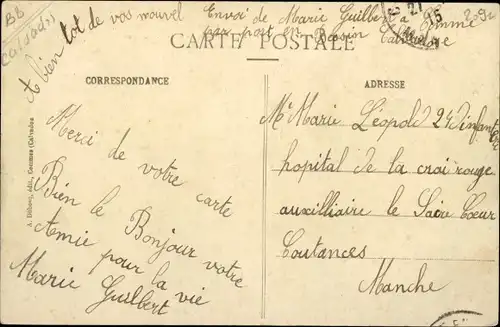 BB
Calvados
A bien tot de vos nouvel
Envoi de Marie Guilbert a Comme
par port en Bessin Calvados
CARTE POSTALE
CORRESPONDANCE
ADRESSE
Merci de votre
carte
Bien le Bonjour votre
Amie pour la vie
Marie Guilbert
Mr Marie Léopold 24 d'infanterie
hopital de la croi rouge
auxilliaire le Sacre Coeur
Coutances
Manche